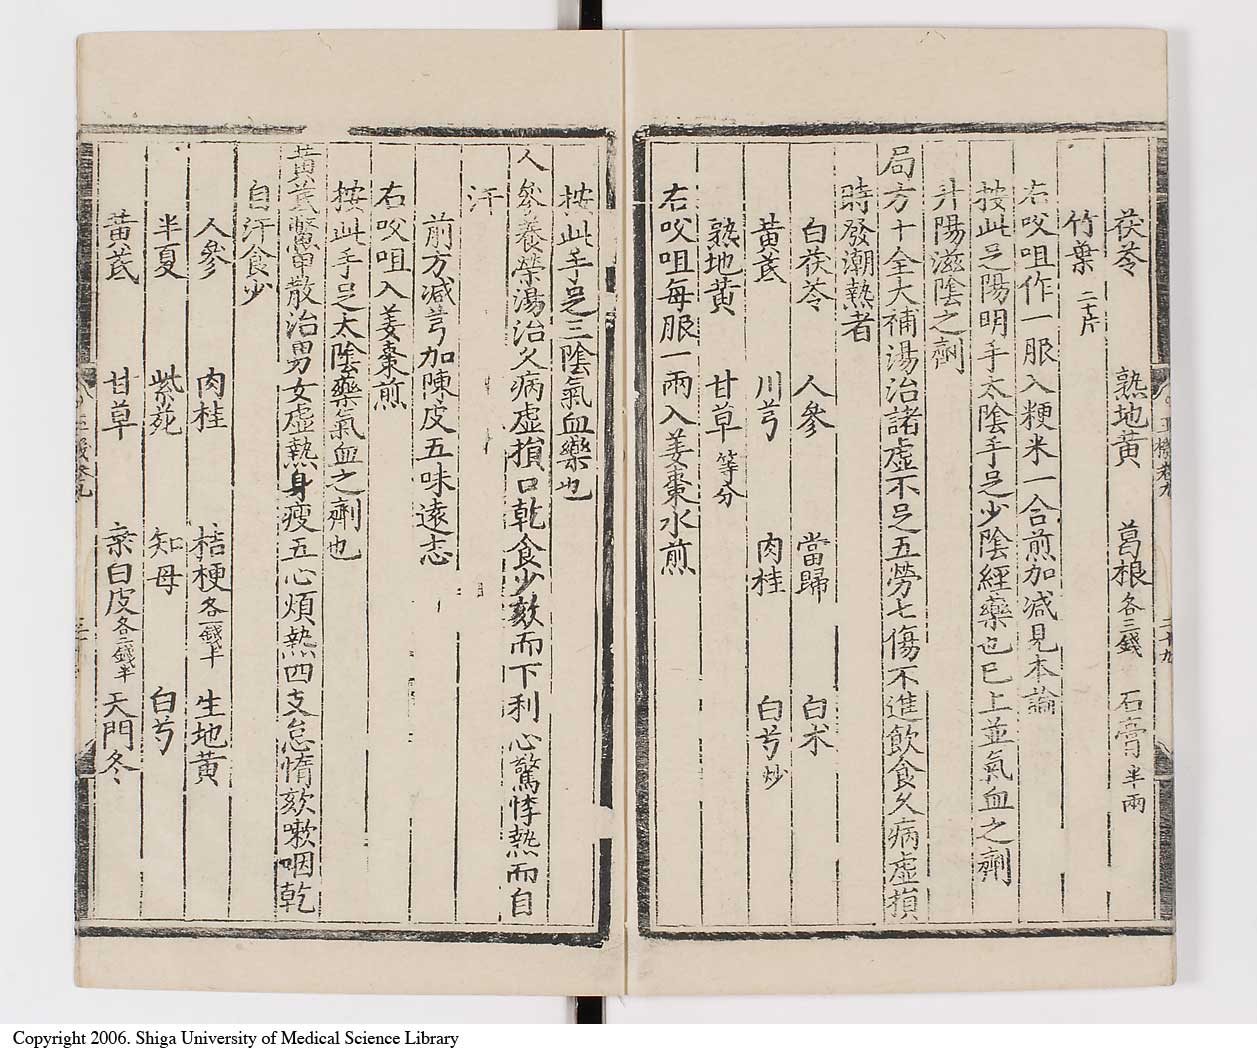 茯苓　熟地黃　葛根各三錢　石膏半兩
竹葉二十片
右㕮咀作一服入粳米一合煎加减見本論
按此足陽明手太陰手足少陰經藥也已上並氣血之劑
升陽滋陰之劑
局方十全大補湯治諸虛不足五勞七傷不進飲食久病虛損
時發潮熱者
白茯苓　人參　當歸　白朮
黃芪　川芎　肉桂　白芍炒
熟地黃　甘草等分
右㕮咀每服一兩入姜棗水煎
按此手足三陰氣血藥也
人參養榮湯治久病虛損口乾食少欬而下利心驚悸熱而自
汗
前方减芎加陳皮五味遠志
右㕮咀入姜棗煎
按此手足太陰藥氣血之劑也
黃芪鱉甲散治男女虛熱身瘦五心煩熱四支怠惰欬嗽咽乾
自汗食少
人參　肉桂　桔梗各一錢半　生地黃
半夏　紫菀　知母　白芍
黃芪　甘草　桒白皮各二錢半　天門冬
Copyright 2006. Shiga University of Medical Science Library